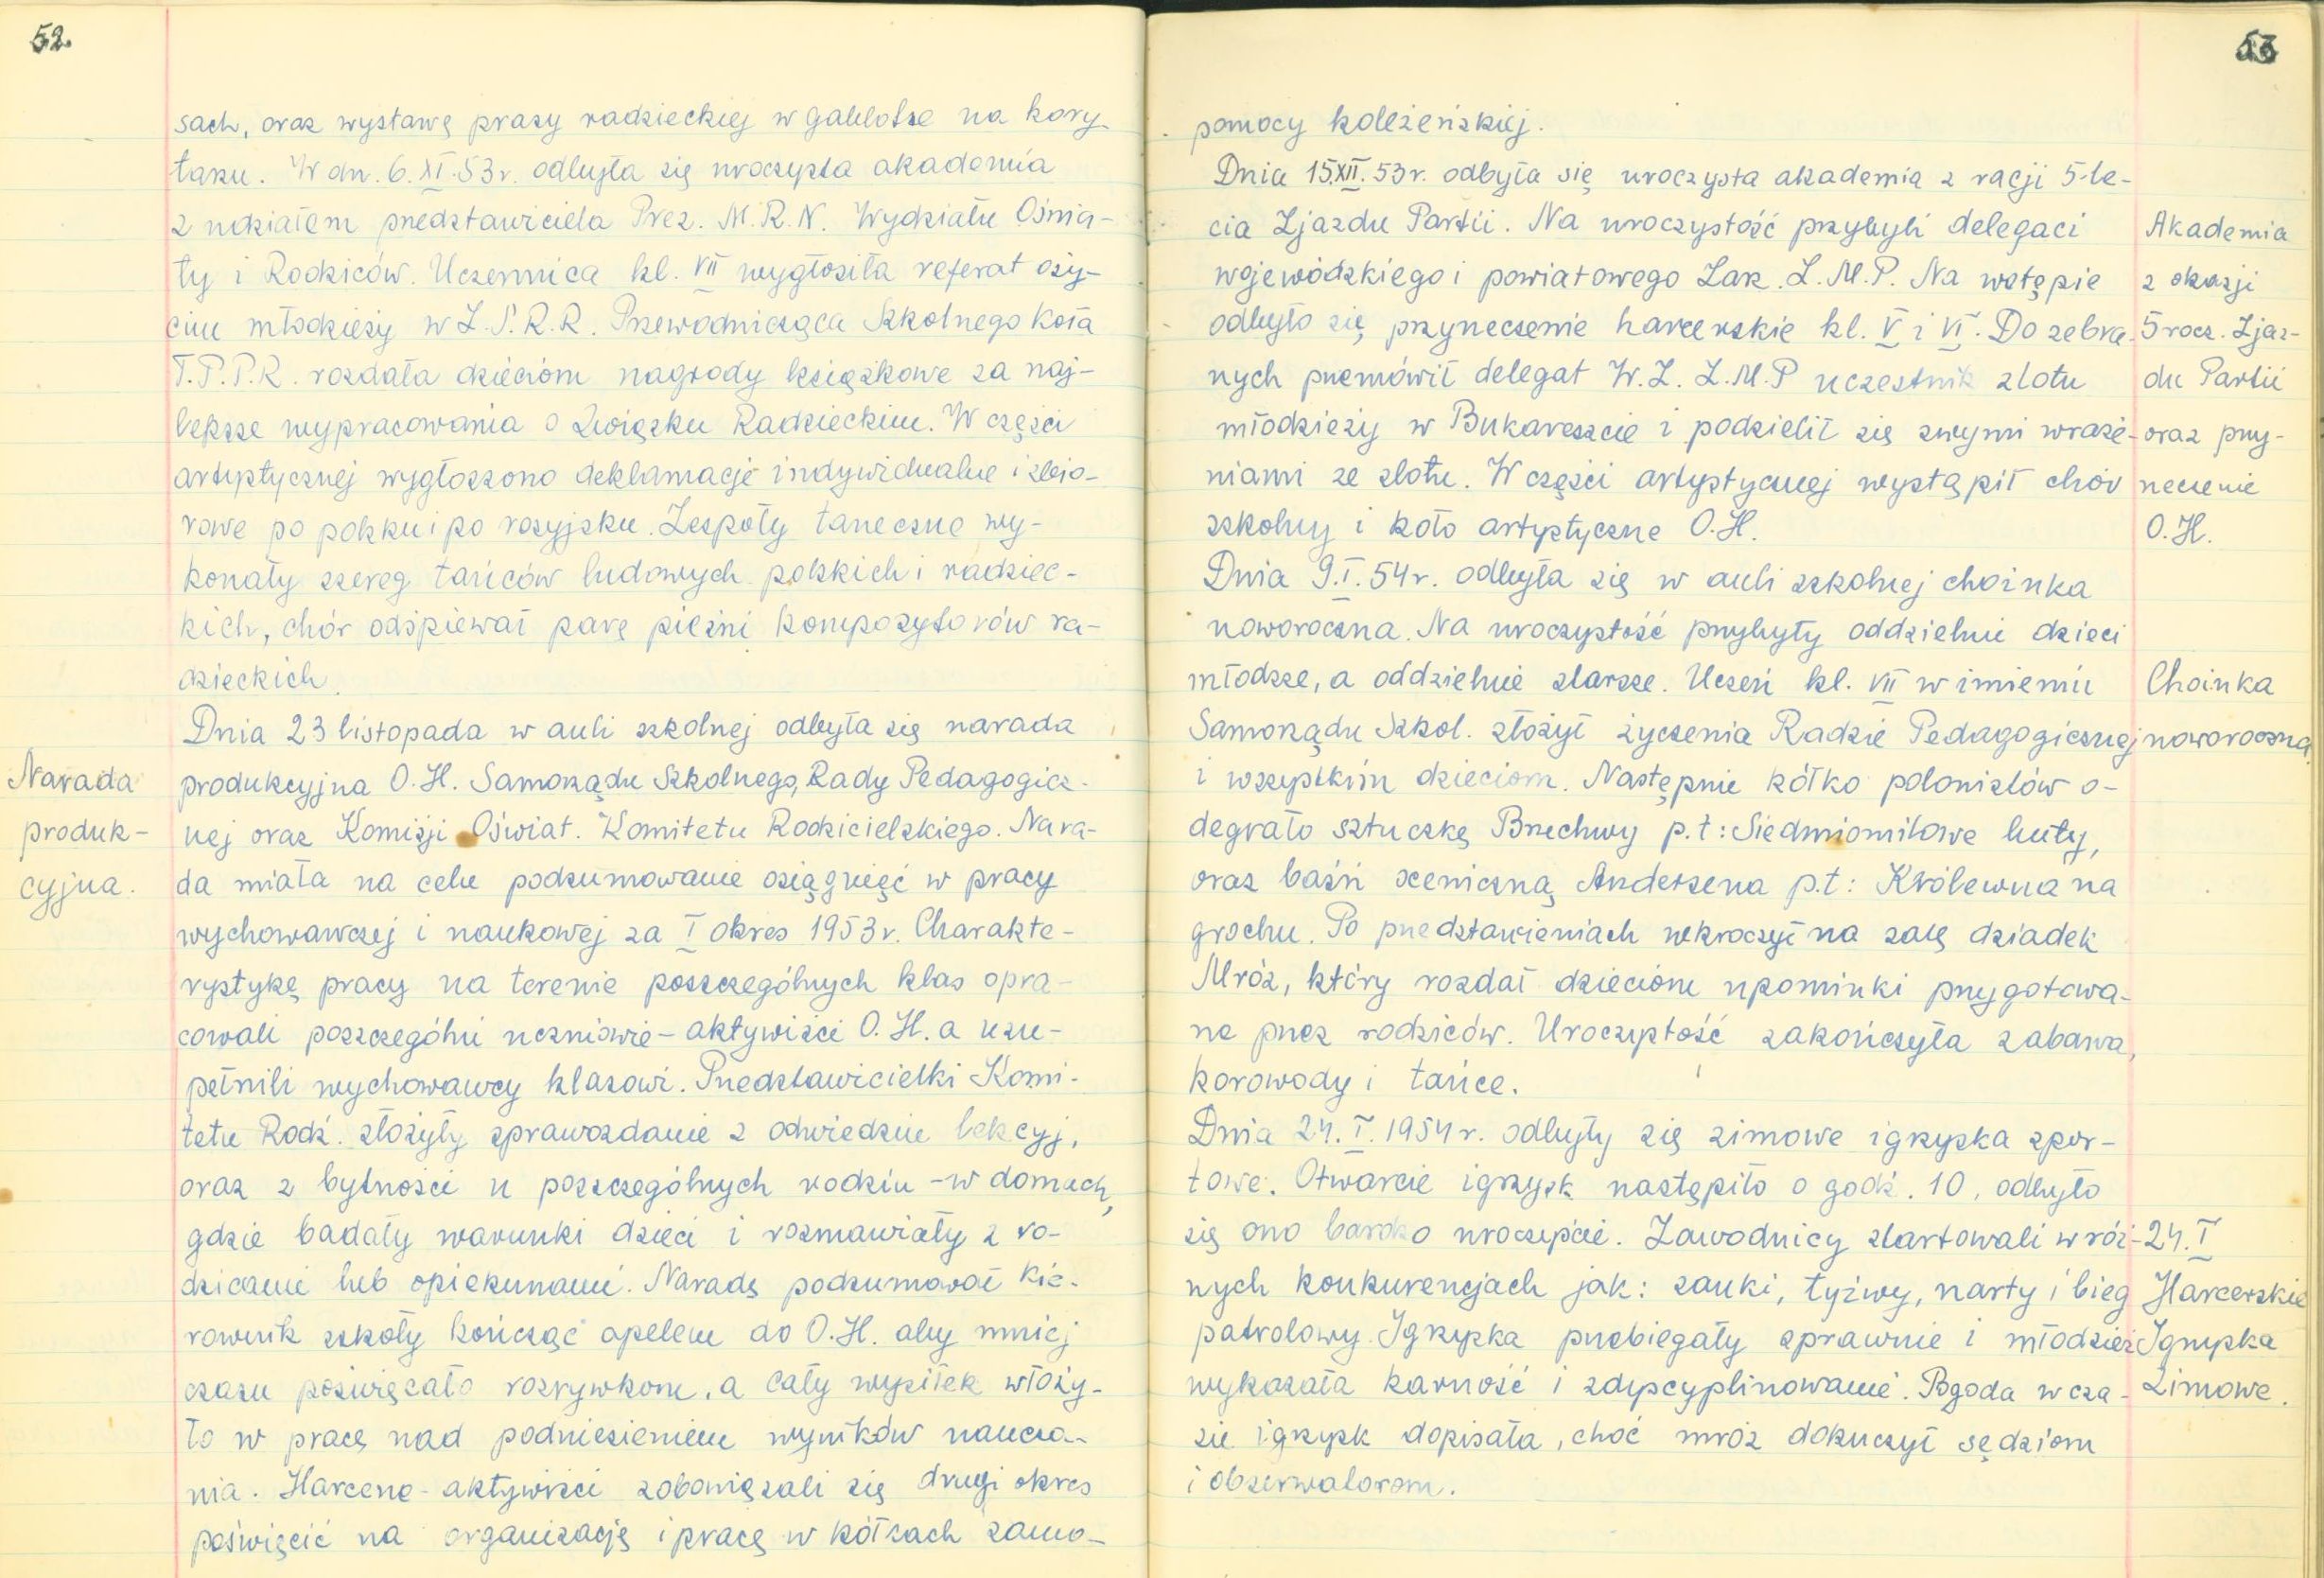 52.
sach, oraz wystawę prasy radzieckiej w gablotce na kory-
tarzu. W dn. 6.XI.53r. odbyła się uroczysta akademia
z udziałem przedstawiciela Prez. M.R.N. Wydziału Oświa-
ty i Rodziców. Uczennica kl. VII wygłosiła referat o ży-
ciu młodzieży w Z.S.R.R. Przewodnicząca Szkolnego Koła
T.P.P.R. rozdała dzieciom nagrody książkowe za naj-
lepsze wypracowania o Związku Radzieckim. W części
artystycznej wygłoszono deklamacje indywidualne i zbio-
rowe po polsku i po rosyjsku. Zespoły taneczne wy-
konały szereg tańców ludowych polskich i radziec-
kich, chór odśpiewał parę pieśni kompozytorów ra-
dzieckich.
Dnia 23 listopada w auli szkolnej odbyła się narada
produkcyjna O.H. Samorządu Szkolnego, Rady Pedagogicz-
nej oraz Komisji Oświat. Komitetu Rodzicielskiego. Nara-
da miała na celu podsumowanie osiągnięć w pracy
wychowawczej i naukowej za I okres 1953r. Charakte-
rystykę pracy na terenie poszczególnych klas opra-
cowali poszczególni uczniowie - aktywiści O.H. a uzu-
pełnili wychowawcy klasowi. Przedstawicielki Komi-
tetu Rodz. złożyły sprawozdanie z odwiedzin lekcyj,
oraz z bytności u poszczególnych rodzin - w domach,
gdzie badały warunki dzieci i rozmawiały z ro-
dzicami lub opiekunami. Naradę podsumował kie-
rownik szkoły kończąc apelem do O.H. aby mniej
czasu poświęcało rozrywkom, a cały wysiłek włoży-
ło w pracę nad podniesieniem wyników naucza-
nia. Harcerze - aktywiści zobowiązali się drugi okres
poświęcić na organizację i pracę w kółkach samo-
Narada
produk-
cyjna.
53
pomocy koleżeńskiej.
Dnia 15.XII.53r. odbyła się uroczysta akademia z racji 5-le-
cia Zjazdu Partii. Na uroczystość przybyli delegaci
wojewódzkiego i powiatowego Zarz. Z.M.P. Na wstępie
odbyło się przyrzeczenie harcerskie kl. V i VI. Do zebra-
nych przemówił delegat W.Z. Z.M.P uczestnik zlotu
młodzieży w Bukareszcie i podzielił się swymi wraże-
niami ze zlotu. W części artystycznej wystąpił chór
szkolny i koło artystyczne O.H.
Dnia 9.I.54r. odbyła się w auli szkolnej choinka
noworoczna. Na uroczystość przybyły oddzielnie dzieci
młodsze, a oddzielnie starsze. Uczeń kl. VII w imieniu
Samorządu Szkol. złożył życzenia Radzie Pedagogicznej
i wszystkim dzieciom. Następnie kółko polonistów o-
degrało sztuczkę Brzechwy p.t: Siedmiomilowe buty,
oraz baśń sceniczną Andersena p.t: Królewna na
grochu. Po przedstawieniach wkroczył na salę dziadek
Mróz, który rozdał dzieciom upominki przygotowa-
ne przez rodziców. Uroczystość zakończyła zabawa,
korowody i tańce.
Dnia 24.I.1954r. odbyły się zimowe igrzyska spor-
towe. Otwarcie igrzysk nastąpiło o godz. 10, odbyło
się ono bardzo uroczyście. Zawodnicy startowali w róż-
nych konkurencjach jak: sanki, łyżwy, narty i bieg
patrolowy. Igrzyska przebiegały sprawnie i młodzież
wykazała karność i zdyscyplinowanie. Pogoda w cza-
sie igrzysk dopisała, choć mróz dokuczył sędziom
i obserwatorom.
Akademia
z okazji
5 rocz. Zjaz-
du Partii
oraz przy-
rzeczenie
O.H.
Choinka
noworoczna.
24.I
Harcerskie
Igrzyska
Zimowe.